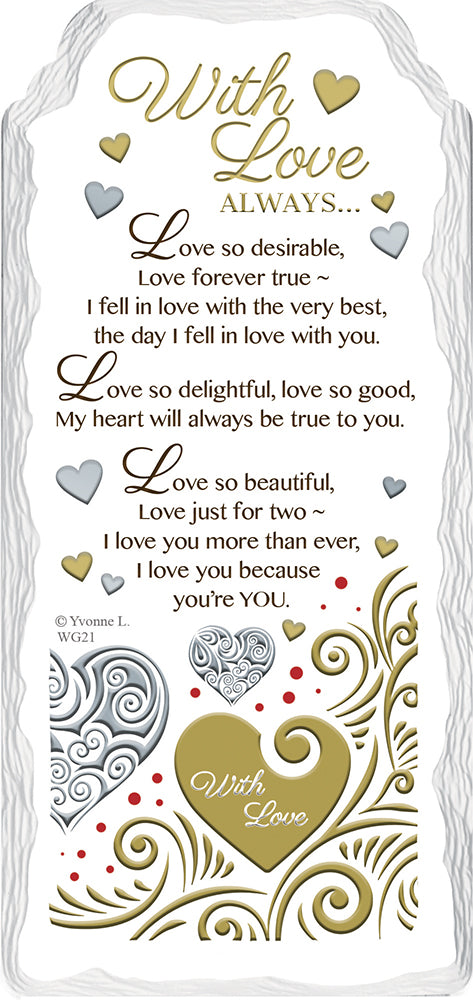 With
Love
ALWAYS...
Love so desirable,
Love forever true ~
I fell in love with the very best,
the day I fell in love with you.
Love so delightful, love so good,
My heart will always be true to you.
Love so beautiful,
Love just for two ~
I love you more than ever,
I love you because
you're YOU.
© Yvonne L.
WG21
With
Love